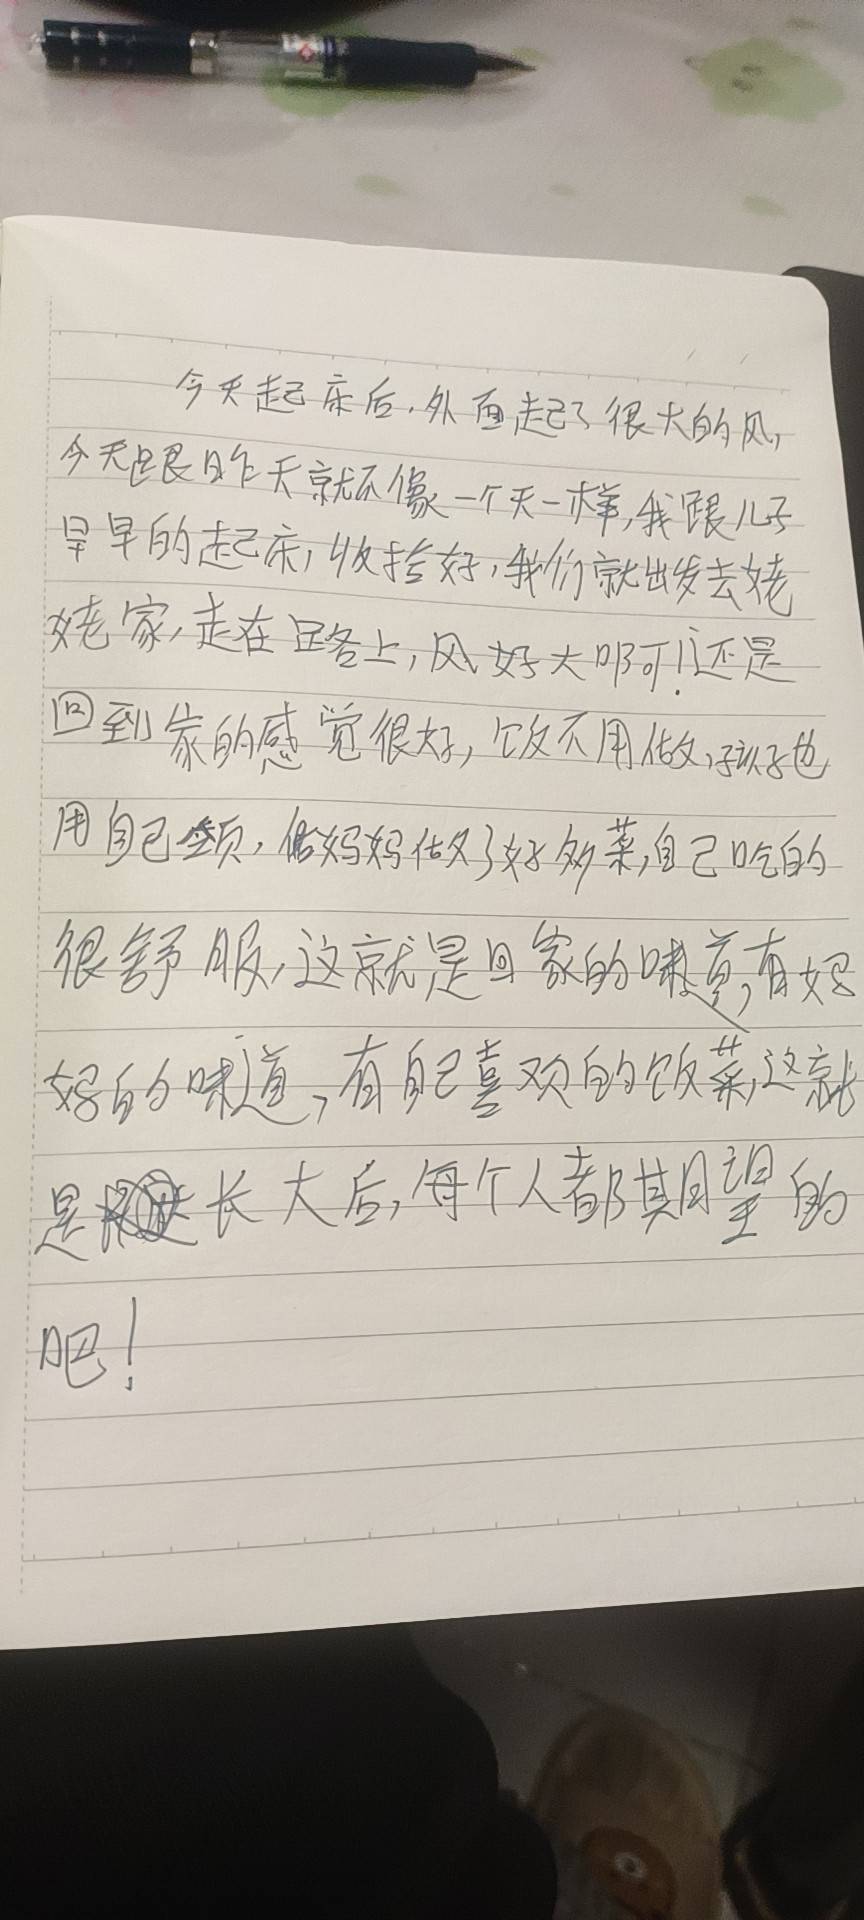 今天起床后,外面起了很大的风,
今天跟昨天就不像一个天一样,我跟儿子
早早的起床,收拾好,我们就出发去姥
姥家,走在路上,风好大啊!还是
回到家的感觉很好,饭不用做,孩子也
用自己领,妈妈做了好多菜,自己吃的
很舒服,这就是回家的味道,有妈
妈的味道,有自己喜欢的饭菜,这就
是长大后,每个人都期望的
吧!